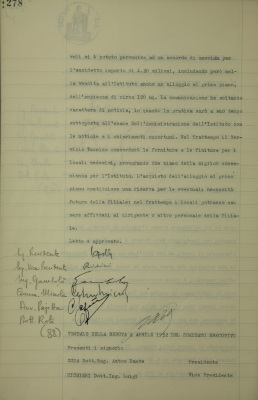 278
voli si è potuto pervenire ad un accordo di massima per
l'anzidetto importo di £.30 milioni, includendo però nel-
la vendita all'Istituto anche un alloggio al primo piano,
dell'ampiezza di circa 120 mq. La comunicazione ha soltanto
carattere di notizia, in quanto la pratica sarà a suo tempo
sottoposta all'esame dell'Amministrazione dell'Istituto con
le notizie e i chiarimenti opportuni. Nel frattempo il Ser-
vizio Tecnico concorderà la fornitura e le finiture per i
locali medesimi, procurando che siano della miglior conve-
nienza per l'Istituto. L'acquisto dell'alloggio al primo
piano costituisce una riserva per le eventuali necessità
future della Filiale; nel frattempo i locali potranno es-
sere affidati al dirigente o altro personale della Filia-
le.
Letto e approvato.
(88)
VERBALE DELLA RIUNIONE 2 APRILE 1952 DEL COMITATO ESECUTIVO
Presenti i signori:
Dott.Rag. Anton Dante Presidente
Dott.Ing. Luigi Vice Presidente